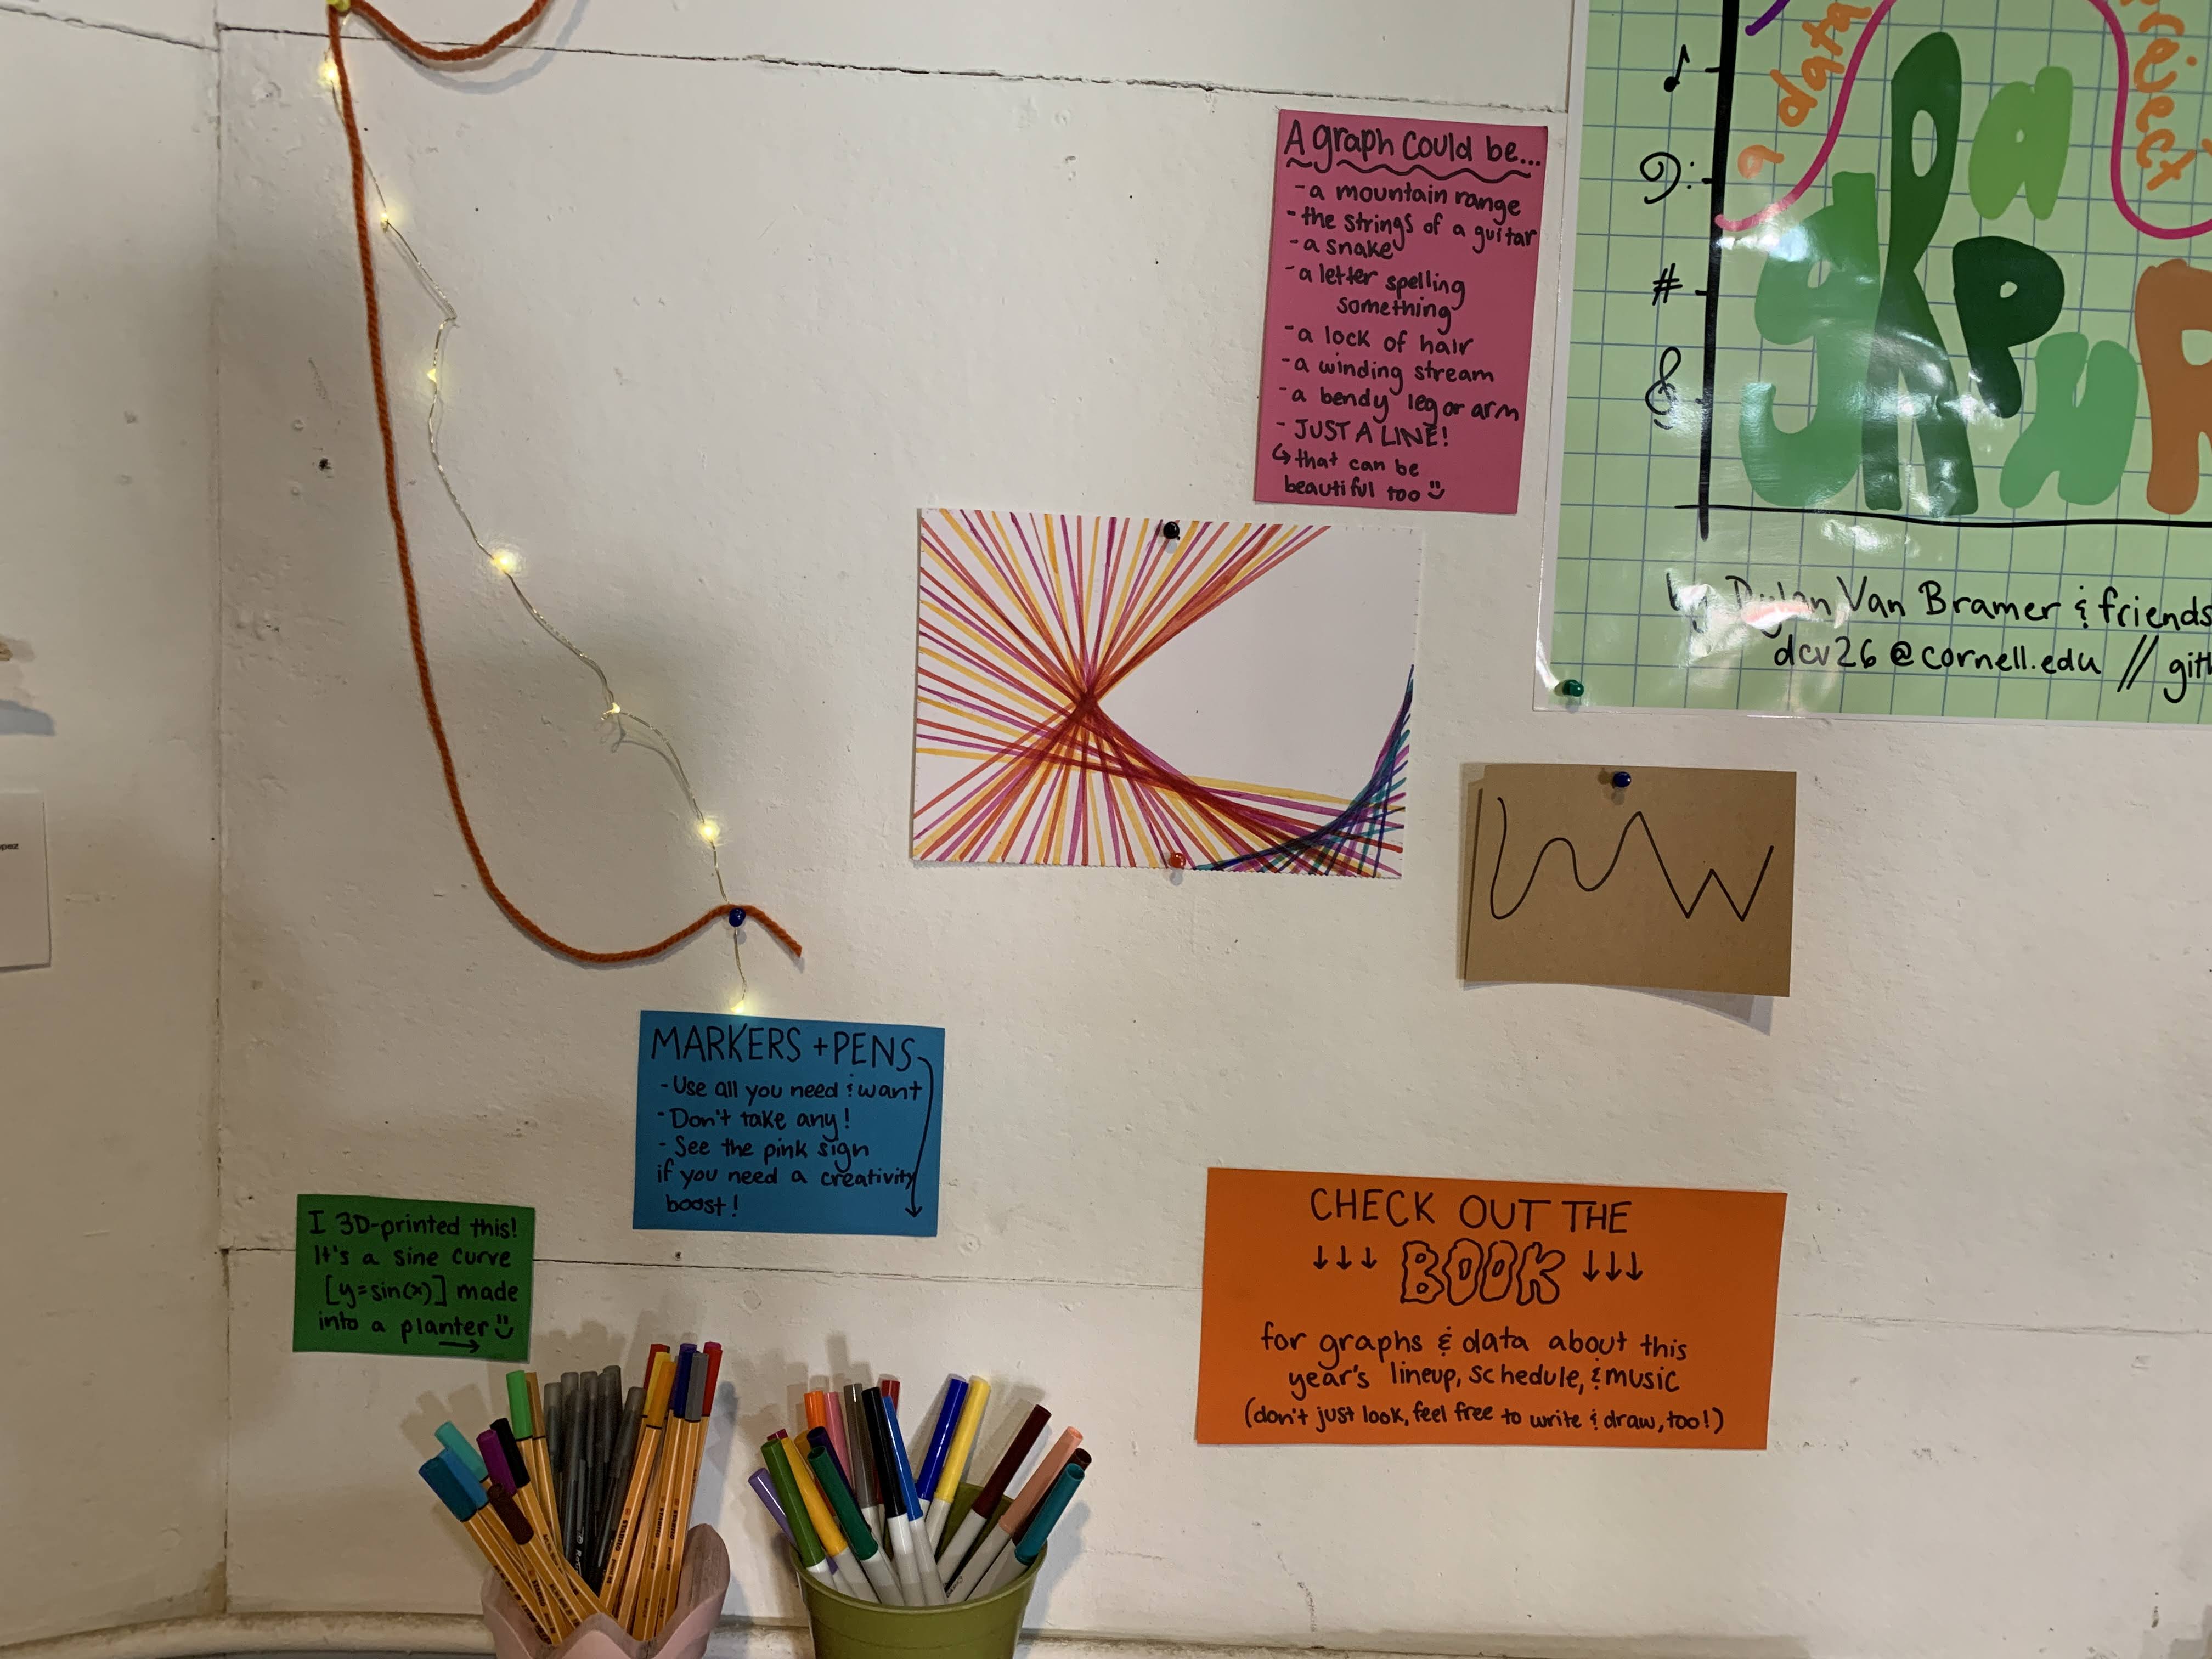 A graph could be...
- a mountain range
- the strings of a guitar
- a snake
- a letter spelling
something
- a lock of hair
- a winding stream
- a bendy leg or arm
- JUST A LINE!
↳ that can be
beautiful too
data
a
by Dylan Van Bramer & friends
dcv26@cornell.edu //
MARKERS + PENS
- Use all you need & want
- Don't take any!
- See the pink sign
if you need a creativity
boost!
I 3D-printed this!
It's a sine curve
[y=sin(x)] made
into a planter
→
CHECK OUT THE
↓↓↓ BOOK ↓↓↓
for graphs & data about this
year's lineup, schedule, & music
(don't just look, feel free to write & draw, too!)